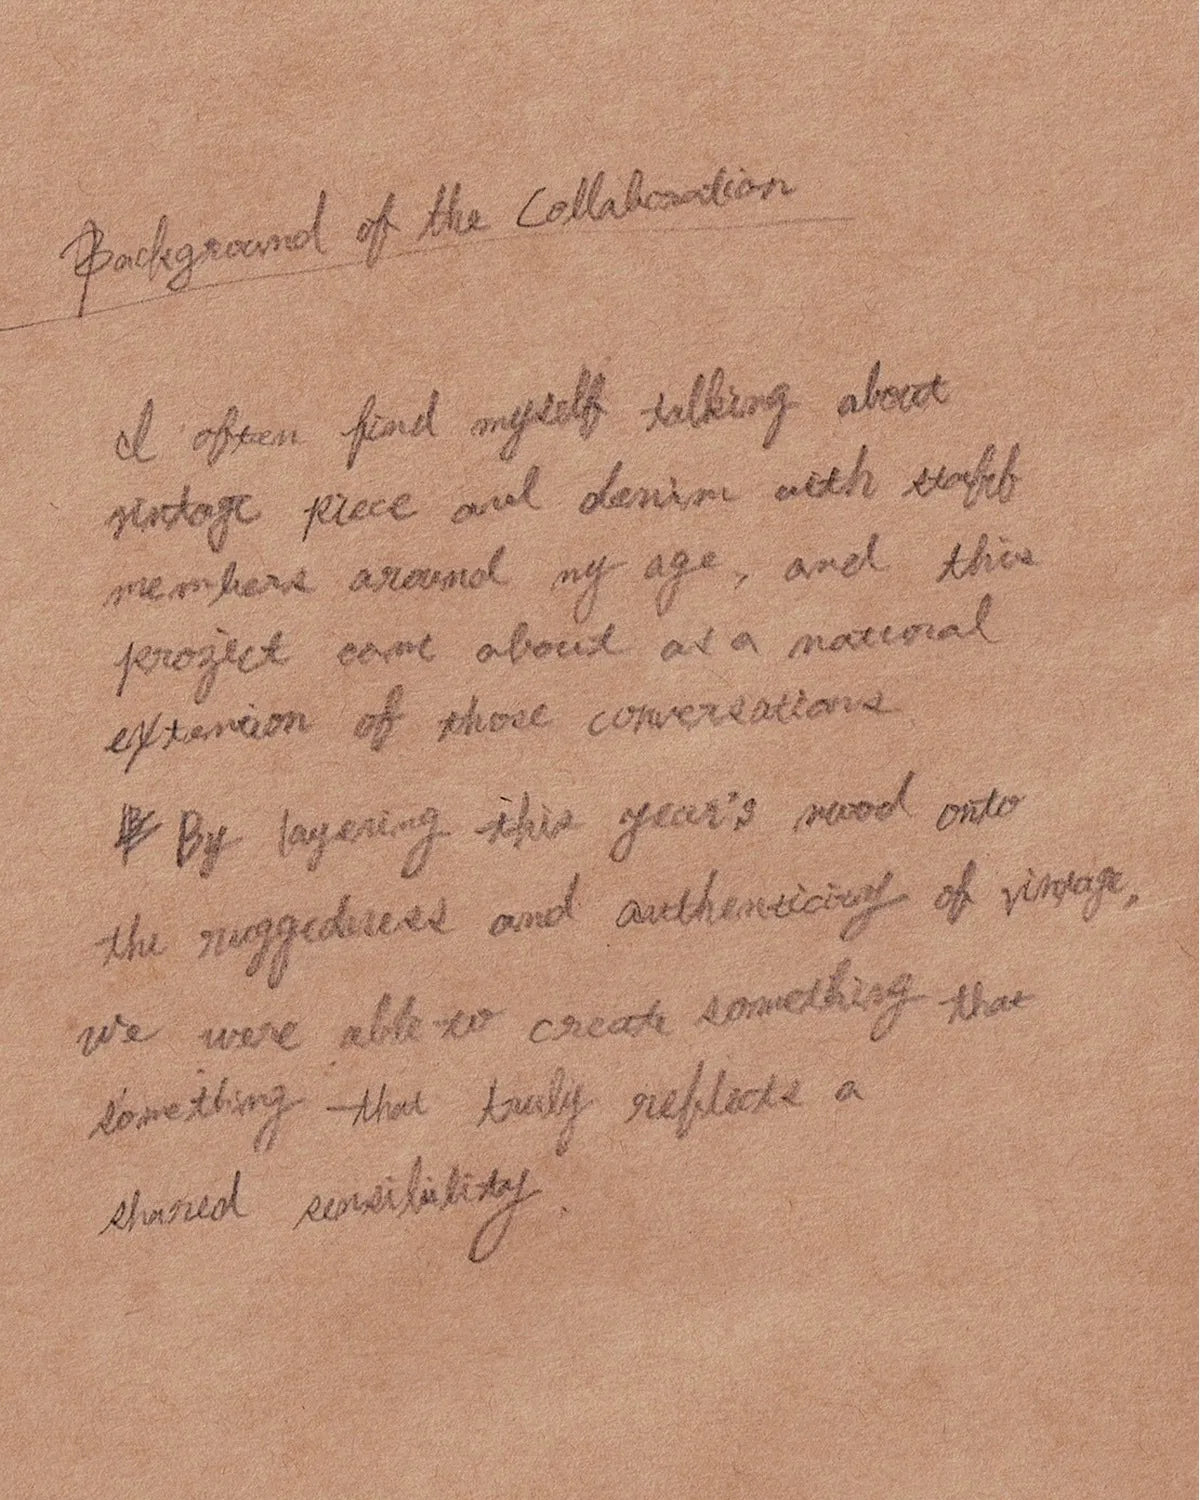 Background of the Collaboration
I often find myself talking about
vintage piece and denim with staff
members around my age, and this
project came about as a natural
extension of those conversations
By layering this year's mood onto
the ruggedness and authenticity of vintage,
we were able to create something that
something that truly reflects a
shared sensibility.